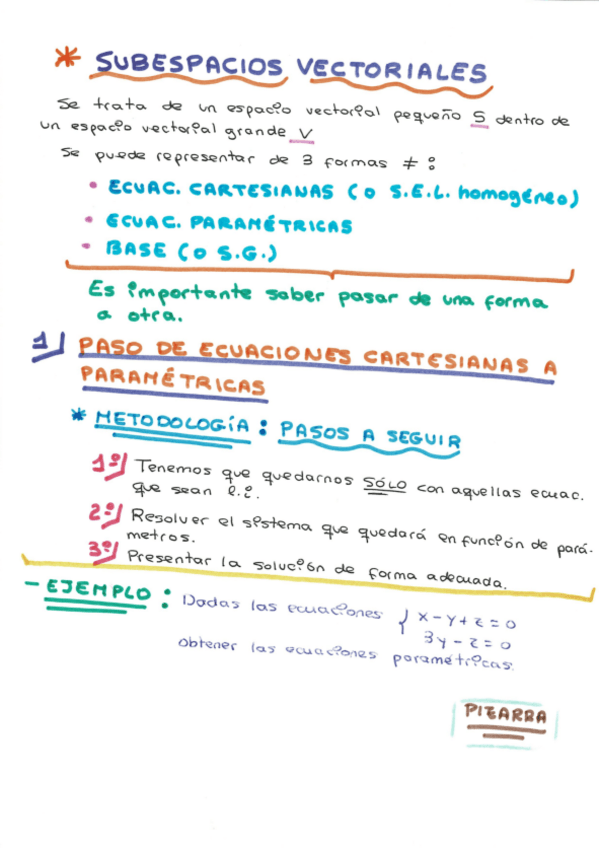 * SUBESPACIOS VECTORIALES
Se trata de un espacio vectorial pequeño S dentro de
un espacio vectorial grande V
Se puede representar de 3 formas ≠ :
• ECUAC. CARTESIANAS (o S.E.L. homogéneo)
• ECUAC. PARAMÉTRICAS
• BASE (o S.G.)
Es importante saber pasar de una forma
a otra.
1) PASO DE ECUACIONES CARTESIANAS A
PARAMÉTRICAS
* METODOLOGÍA : PASOS A SEGUIR
1º) Tenemos que quedarnos SÓLO con aquellas ecuac.
que sean l.i.
2º) Resolver el sistema que quedará en función de pará-
metros.
3º) Presentar la solución de forma adecuada.
- EJEMPLO : Dadas las ecuaciones { x - y + z = 0
3y - z = 0
obtener las ecuaciones paramétricas.
PIZARRA